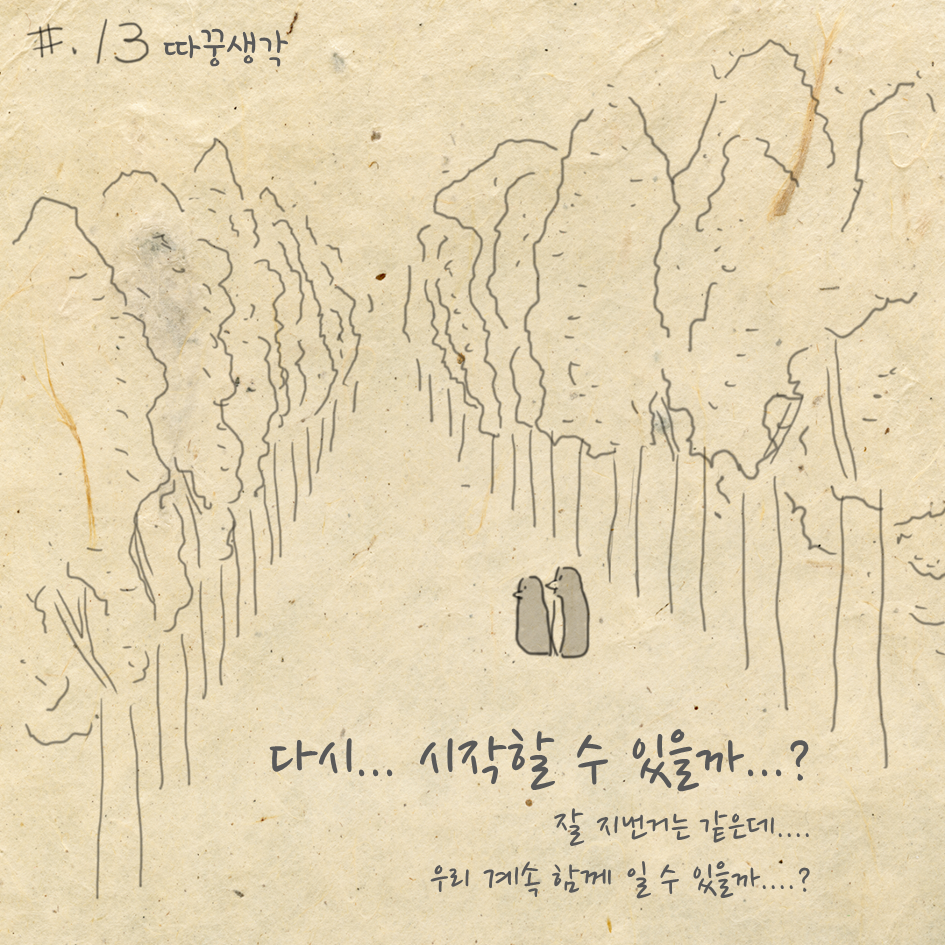 #.13 따꿍생각
다시... 시작할 수 있을까...?
잘 지낸거는 같은데....
우리 계속 함께 일 수 있을까....?